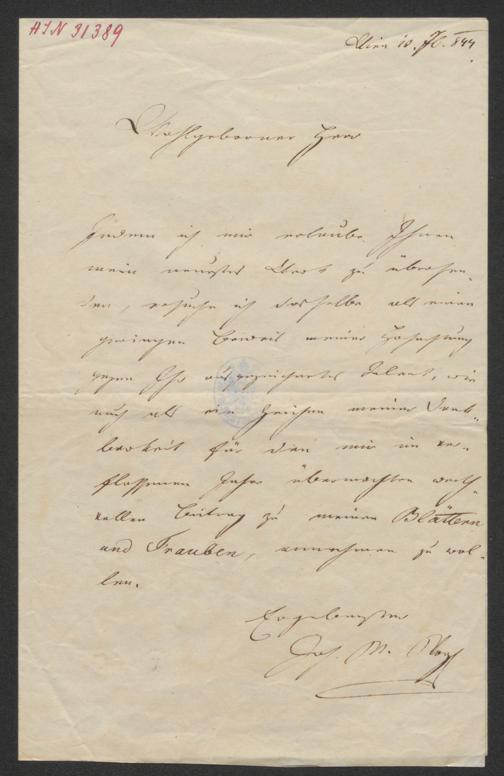 HIN 31389
Wien 10. 844.
Wohlgeborner Herr
Indem ich mir erlaube Ihnen
mein neustes Werk zu übersen-
den, ersuche ich dasselbe als einen
geringen Beweis meiner Hochachtung
gegen Ihr ausgezeichnetes Talent, wie
auch als ein Zeichen meiner Dank-
barkeit für den mir im ver-
flossenen Jahre übermachten werth-
vollen Beitrag zu meinen Blättern
und Trauben, annehmen zu wol-
len.
Ergebenster
Jos. M.